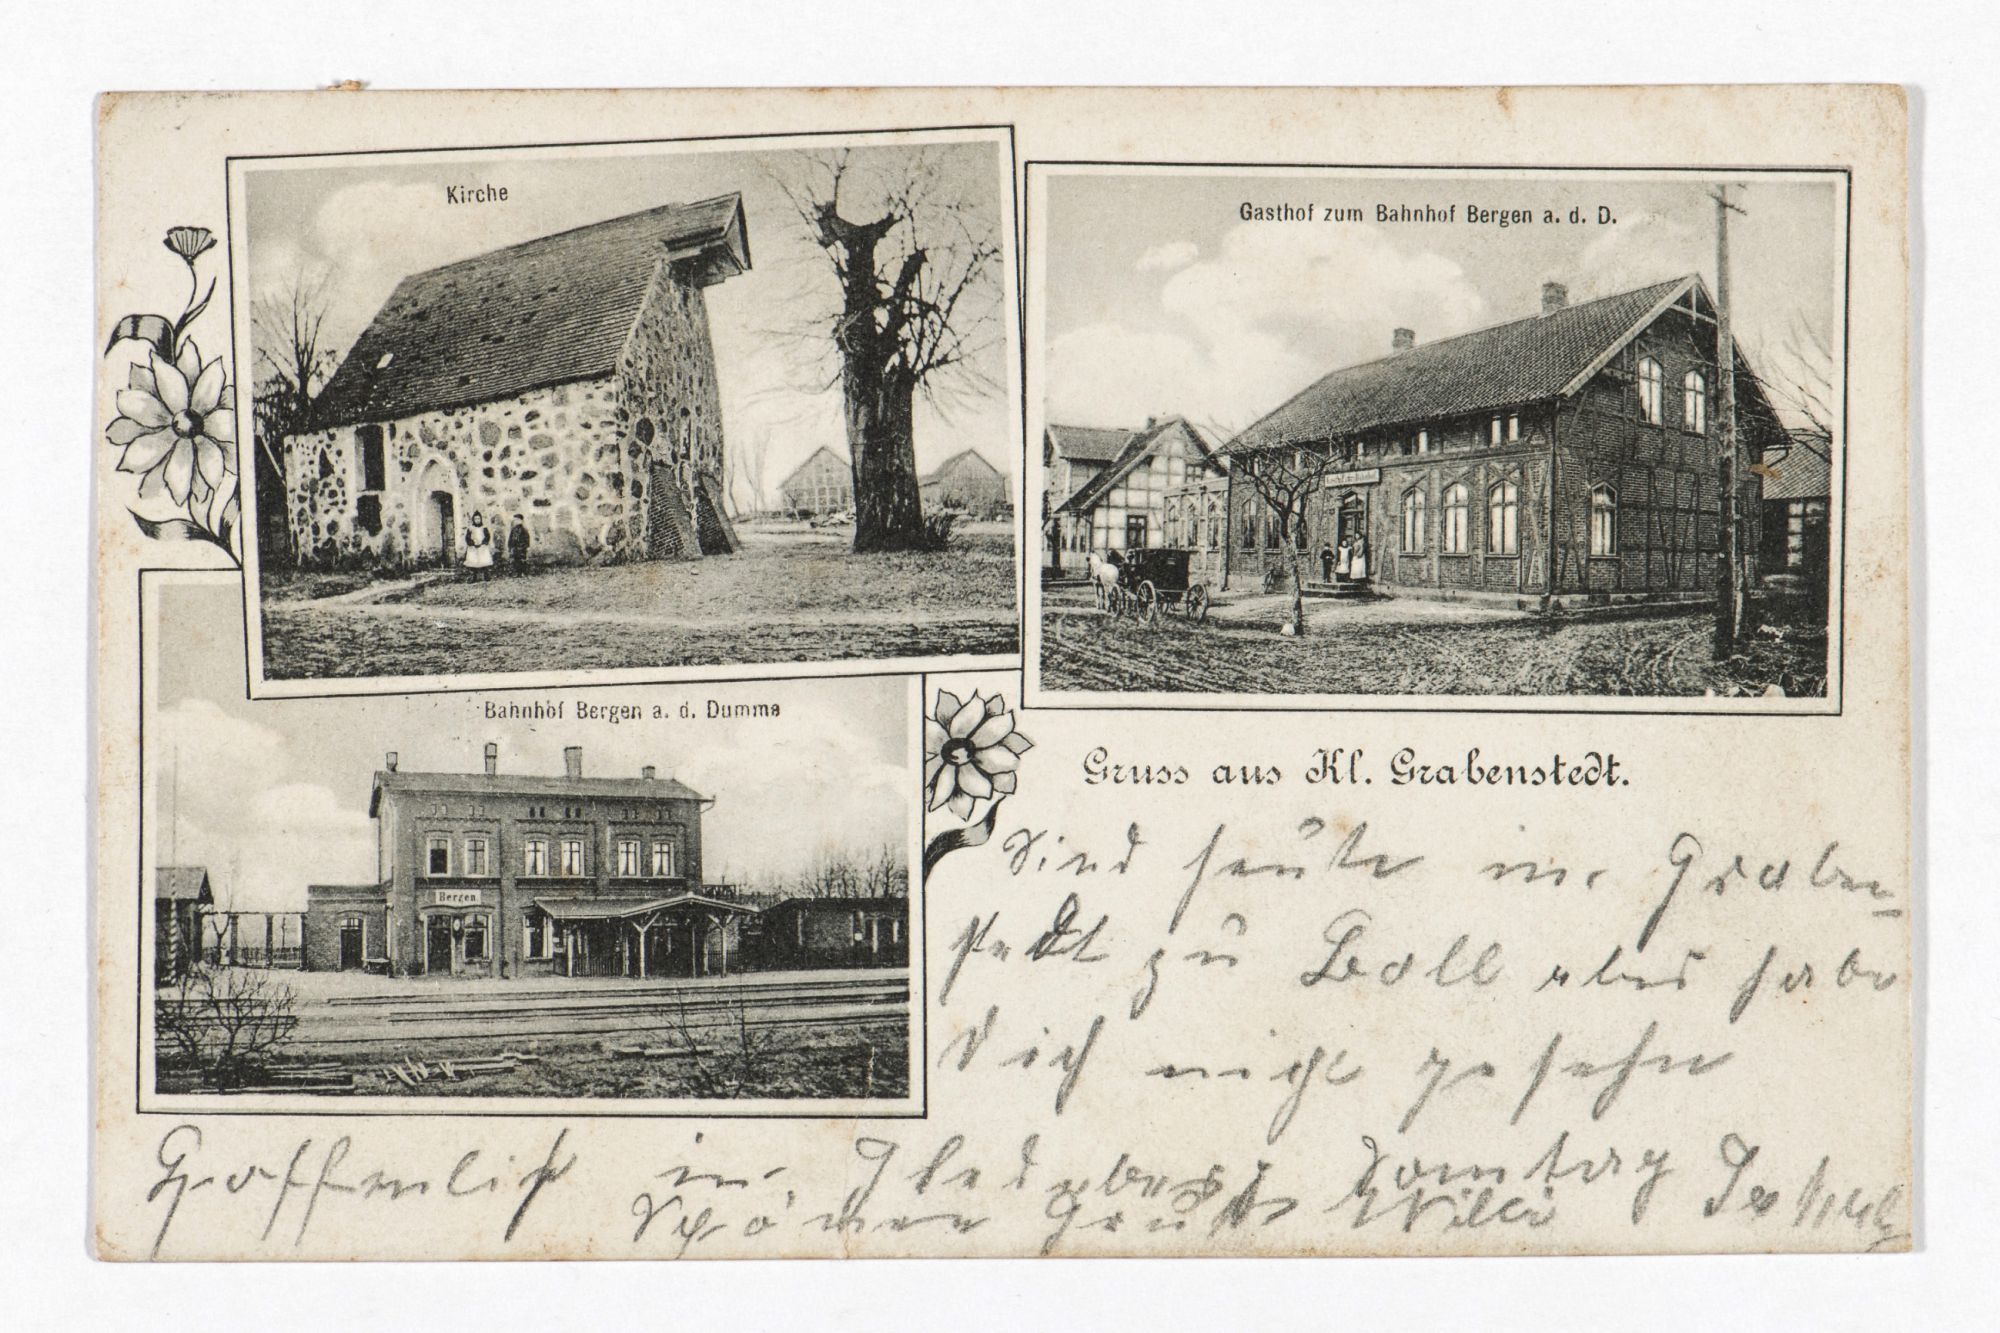 Kirche
Gasthof zum Bahnhof Bergen a. d. D.
Bahnhof Bergen a. d. Dumme
Bergen
Gruss aus Kl. Grabenstedt.
Sind heute in Graben-
stedt zu Boll aber habe
Dich nicht gesehn
Hoffenlich in
Sonntag
Schönen Gruss Willi